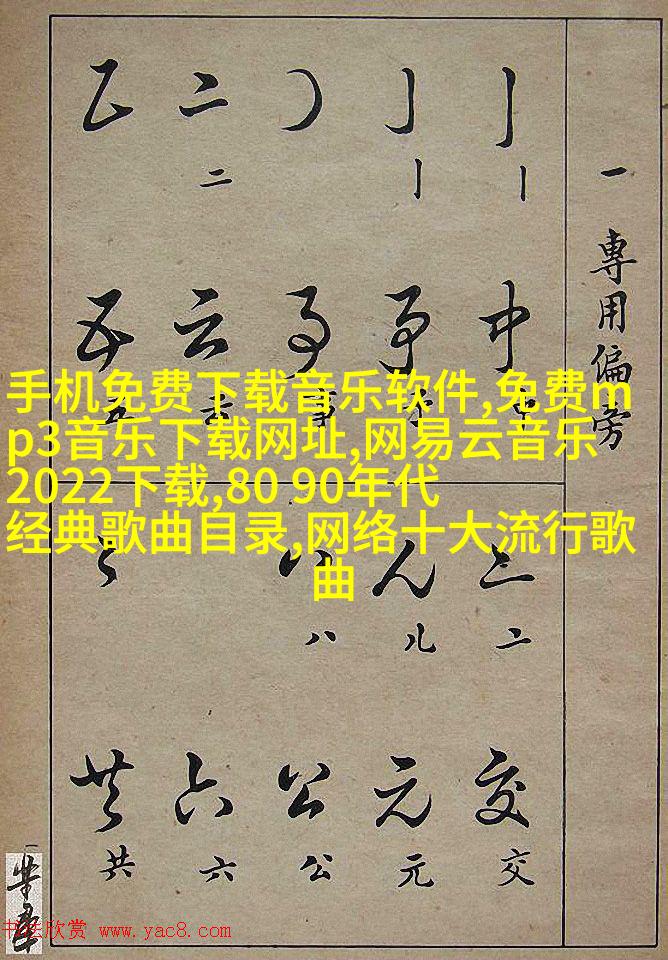 一 專用偏旁
中 爭 事 云 五
儿 八
交 元 公 六 共
交 元 公 六 共
手机免费下载音乐软件,免费m
p3音乐下载网址,网易云音乐
2022下载,80 90年代
经典歌曲目录,网络十大流行歌
曲
书法欣赏 www.yac8.com